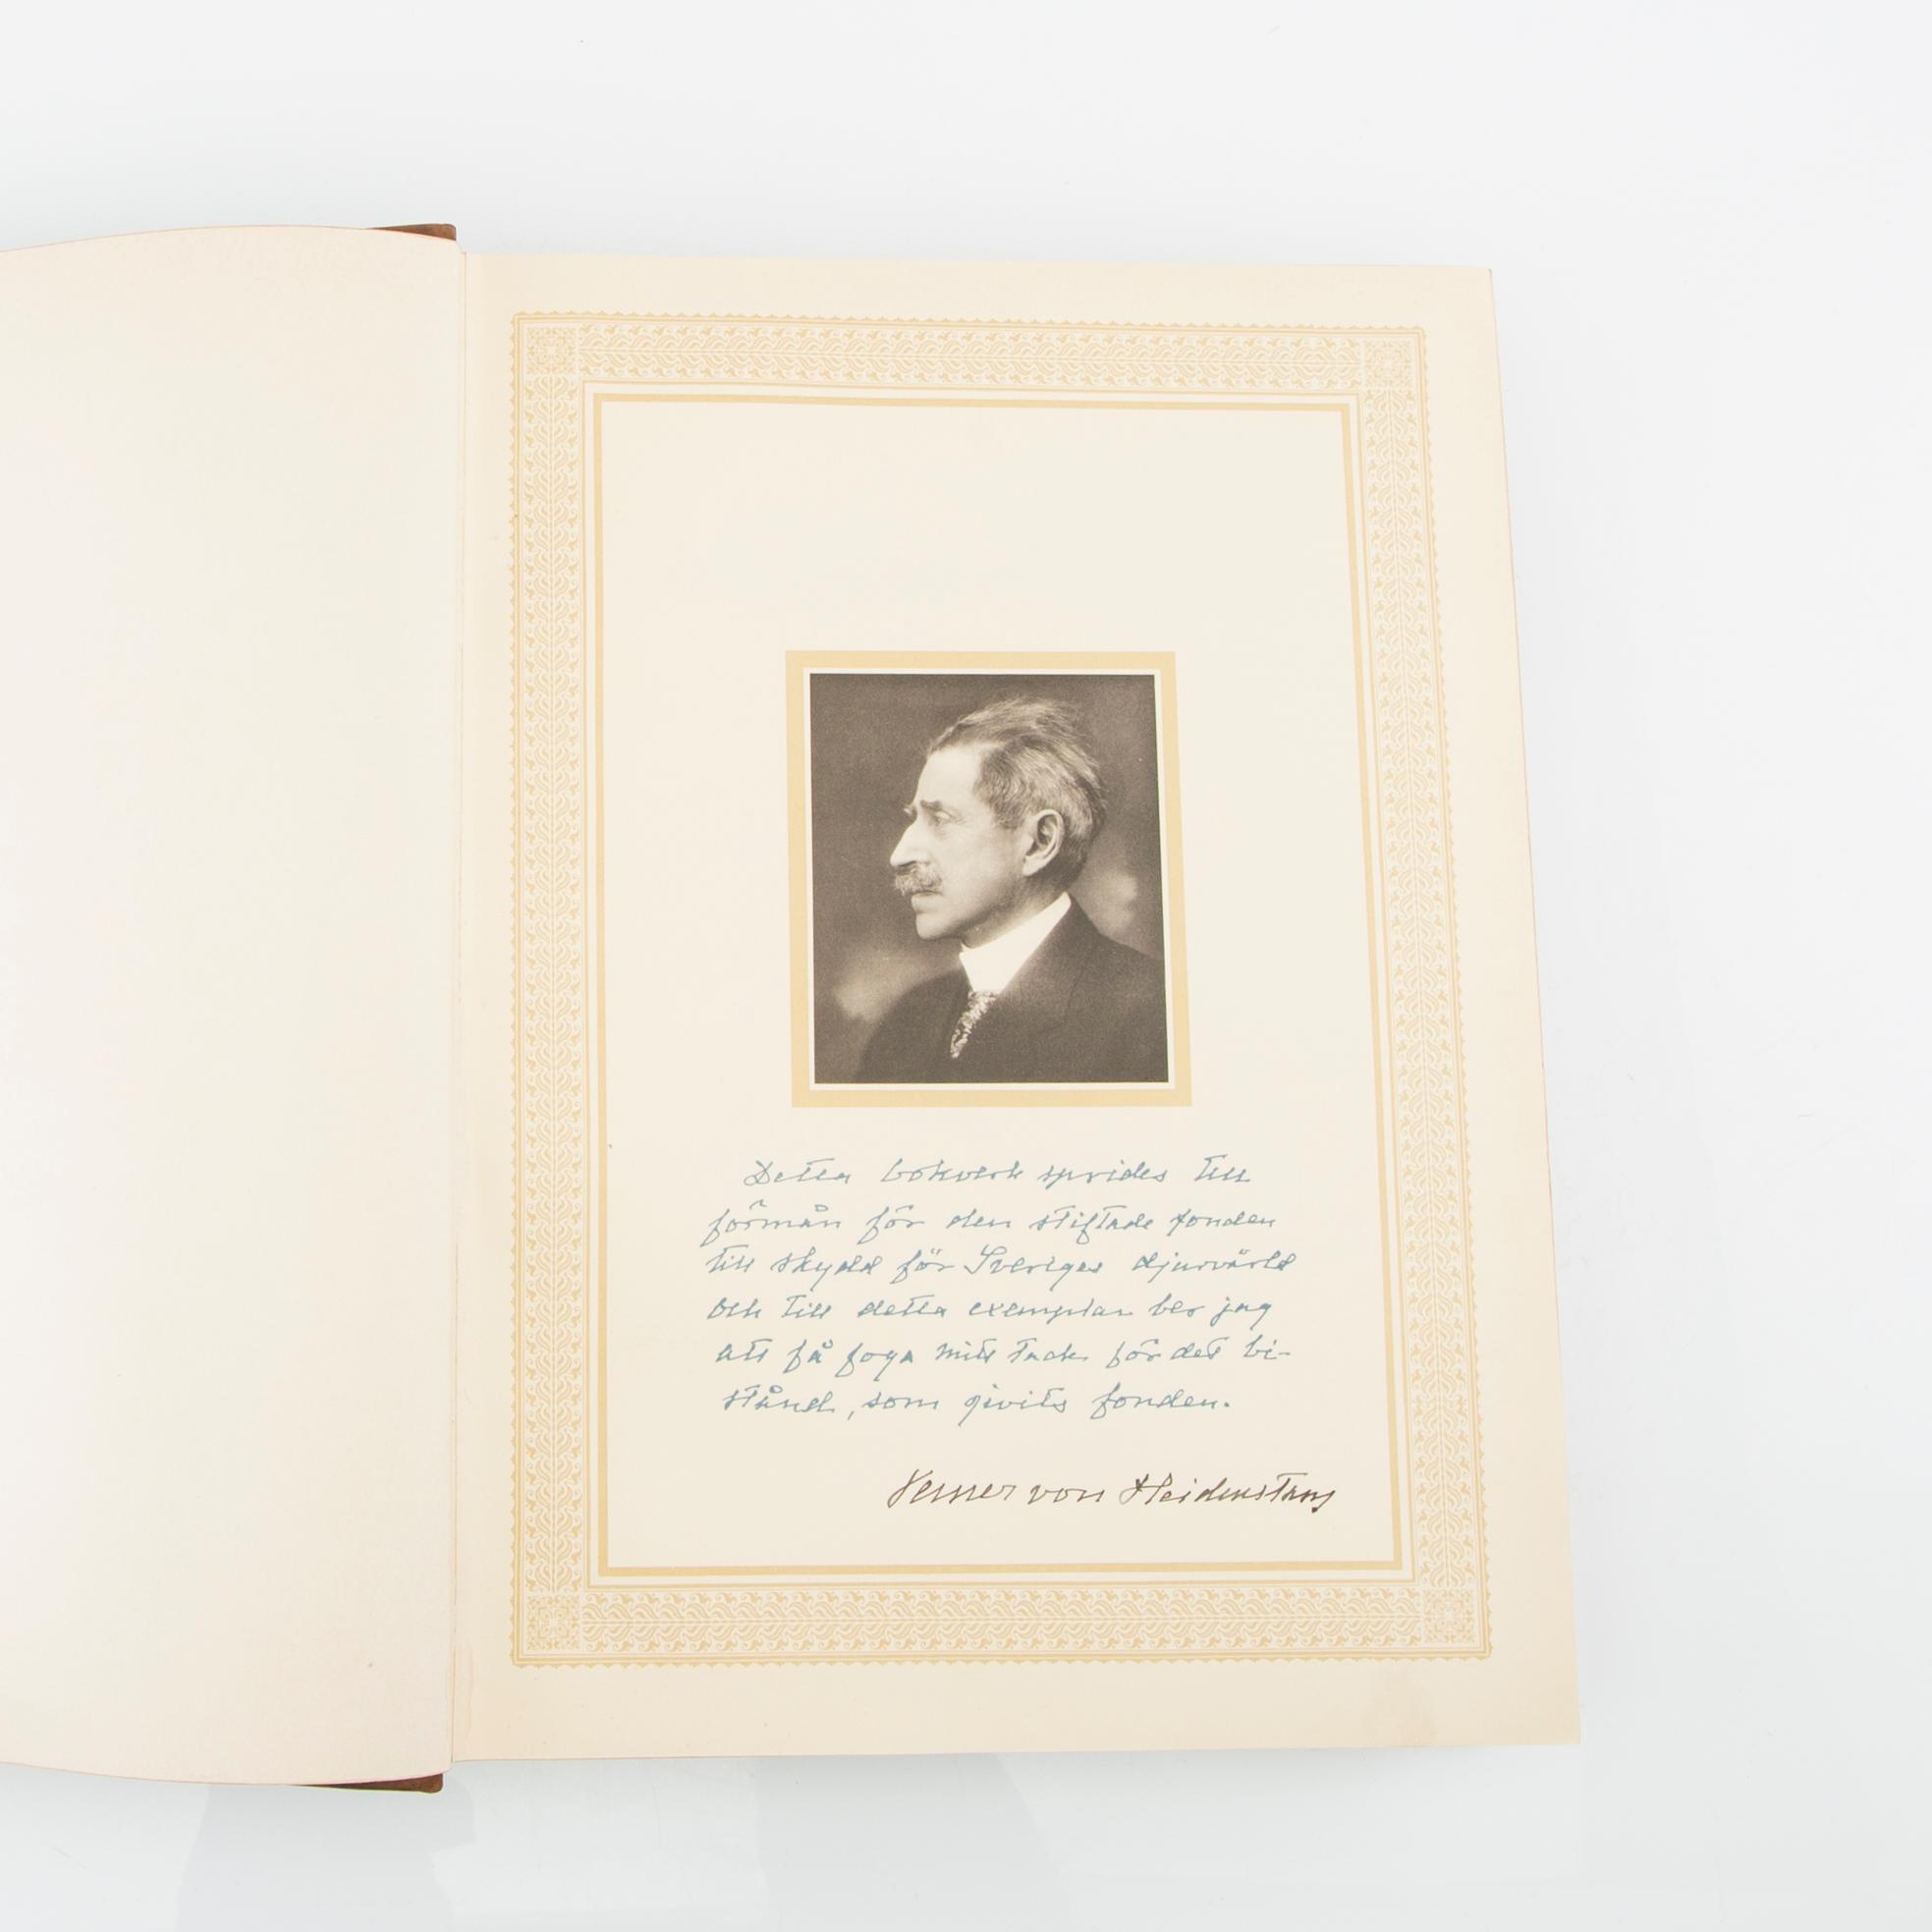 Detta bokverk sprides till
förmån för den stiftade fonden
till skydd för Sveriges djurvärld
och till detta exemplar ber jag
att få foga mitt tack för det bi-
stånd, som givits fonden.
Verner von Heidenstam